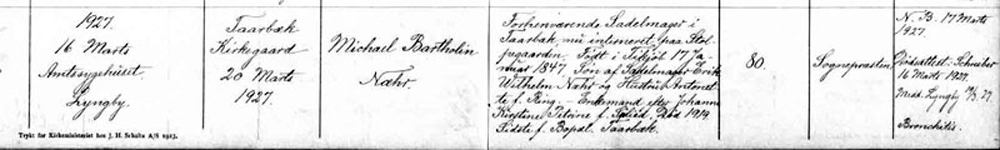 1927.
16 Marts
Amtssygehuset.
Lyngby.
Trykt for Kirkeministeriet hos J. H. Schultz A/S 1923.
Taarbæk
Kirkegaard
20 Marts
1927.
Michael Bartholin
Næhr.
Forhenværende Sadelmager i
Taarbæk nu indlemmet paa Stol-
pegaarden. Født i Tikjøb 17 Ja-
nuar 1847. Søn af Sadelmager Erik
Wilhelm Næhr og Hustru Antonet-
te f. Ring. – Enkemand efter Johanne
Kirstine Petrine f. Død 1919.
Sidste f. Bopæl. Taarbæk.
80.
Sognepræsten.
N. B. 17 Marts
1927.
Dødsattest: Schreiber
16 Marts 1927.
Medd. Lyngby 27.
Bronchitis.